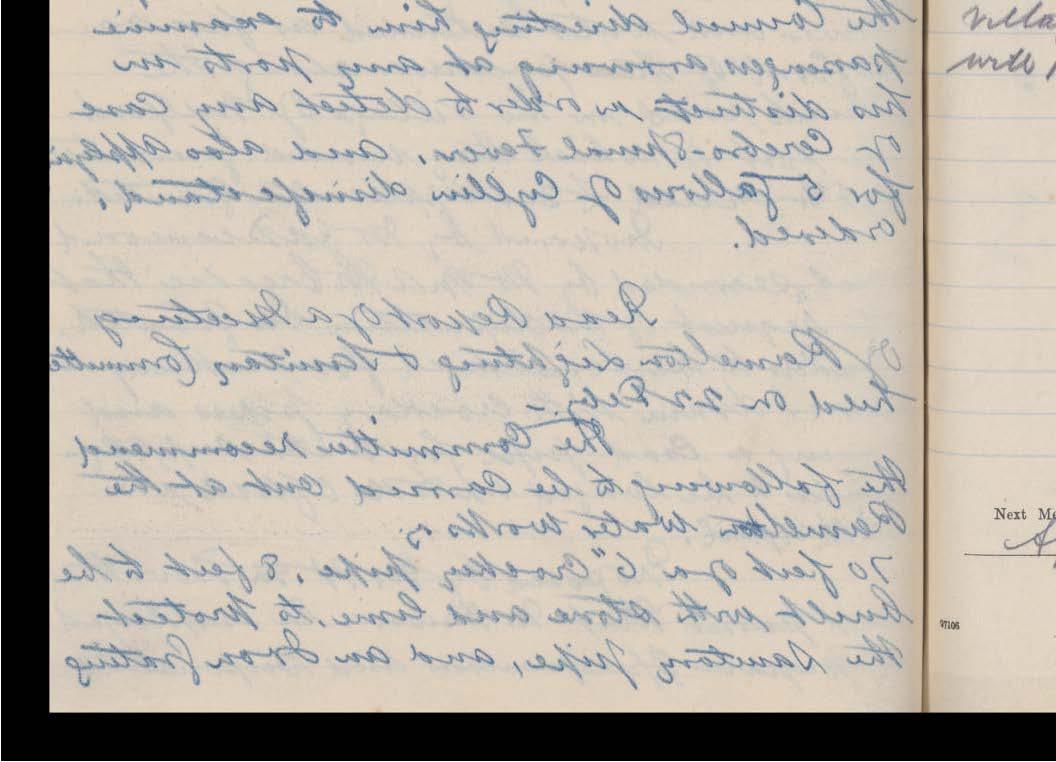 the Council directing him to examine
passengers arriving at any ports in
his district in order to detect any Case
of Cerebro-Spinal Fever, and also applyin
for 5 gallons of Cyllin disinfectant,
Ordered.
Read Report of a Meeting
of Ramelton Lighting & Sanitary Committe
held on 22 Feby. –
The Committee recommend
the following to be Carried out at the
Ramelton Water Works
70 feet of a 6" Crockery pipe, 8 feet to be
built with stone and lime, to protect
the Sanitary pipe, and an Iron grating
Villa
Next Me
97106